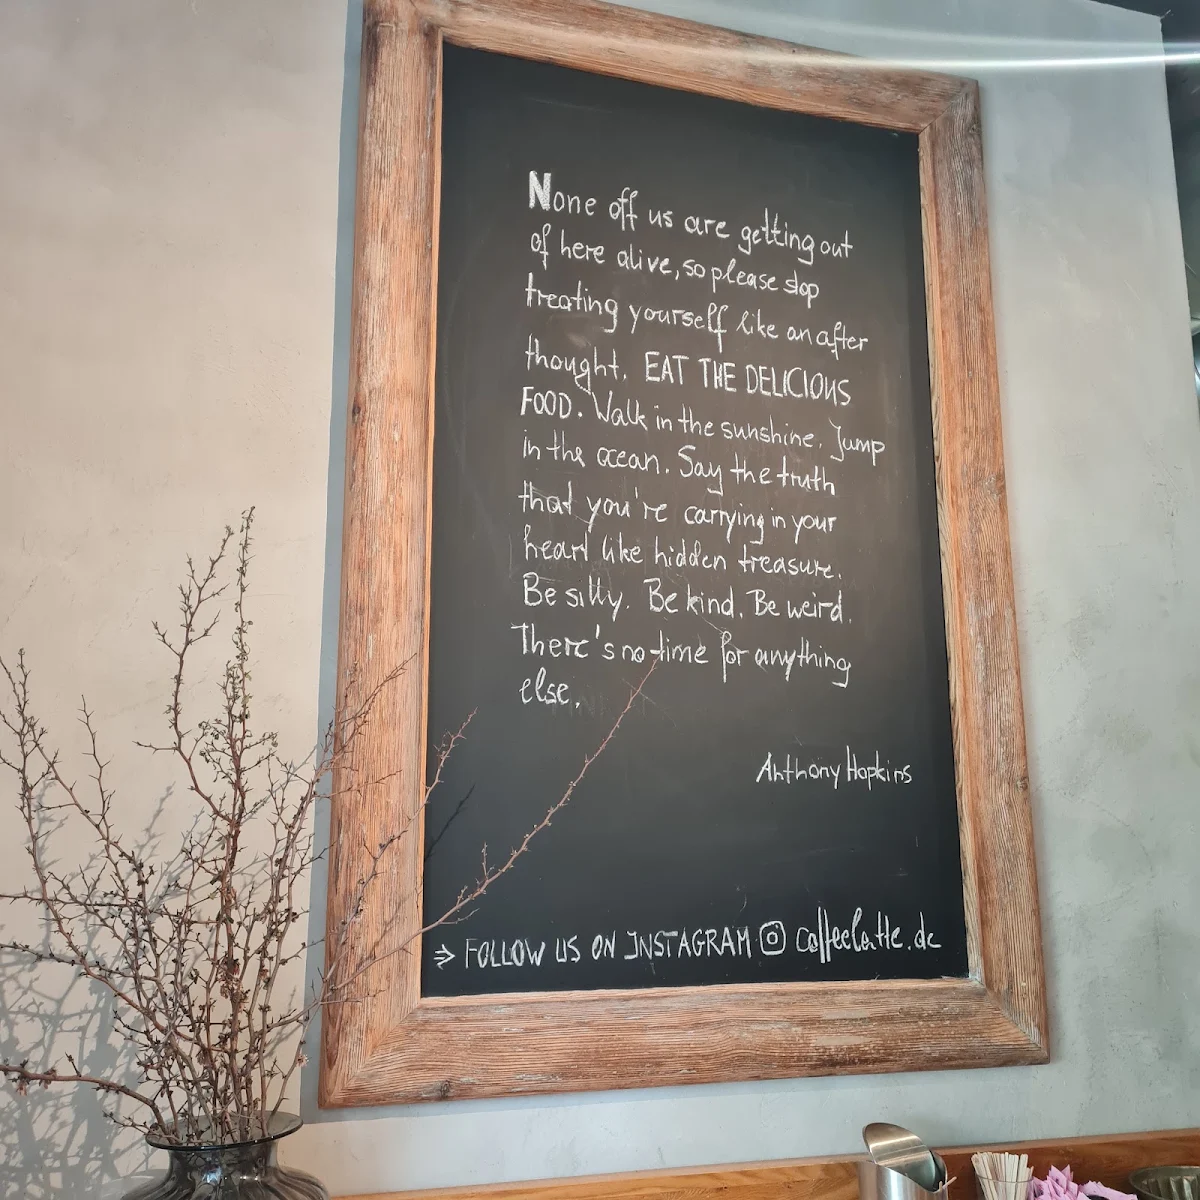 None off us are getting out
of here alive, so please stop
treating yourself like an after
thought. EAT THE DELICIOUS
FOOD. Walk in the sunshine. Jump
in the ocean. Say the truth
that you're carrying in your
heart like hidden treasure.
Be silly. Be kind. Be weird.
There's no time for anything
else.
Anthony Hopkins
⇒ FOLLOW US ON INSTAGRAM coffeelatte.de